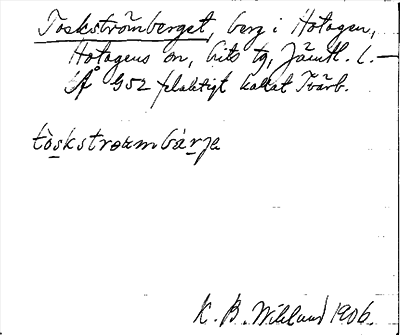 Toskströmberget, berg i Hotagen,
Hotagens sn, Lits tg, Jämtl. l. –
På G52 felaktigt kallat Tvärb.
tòskstroumbárja
K. B. Wiklund 1906.